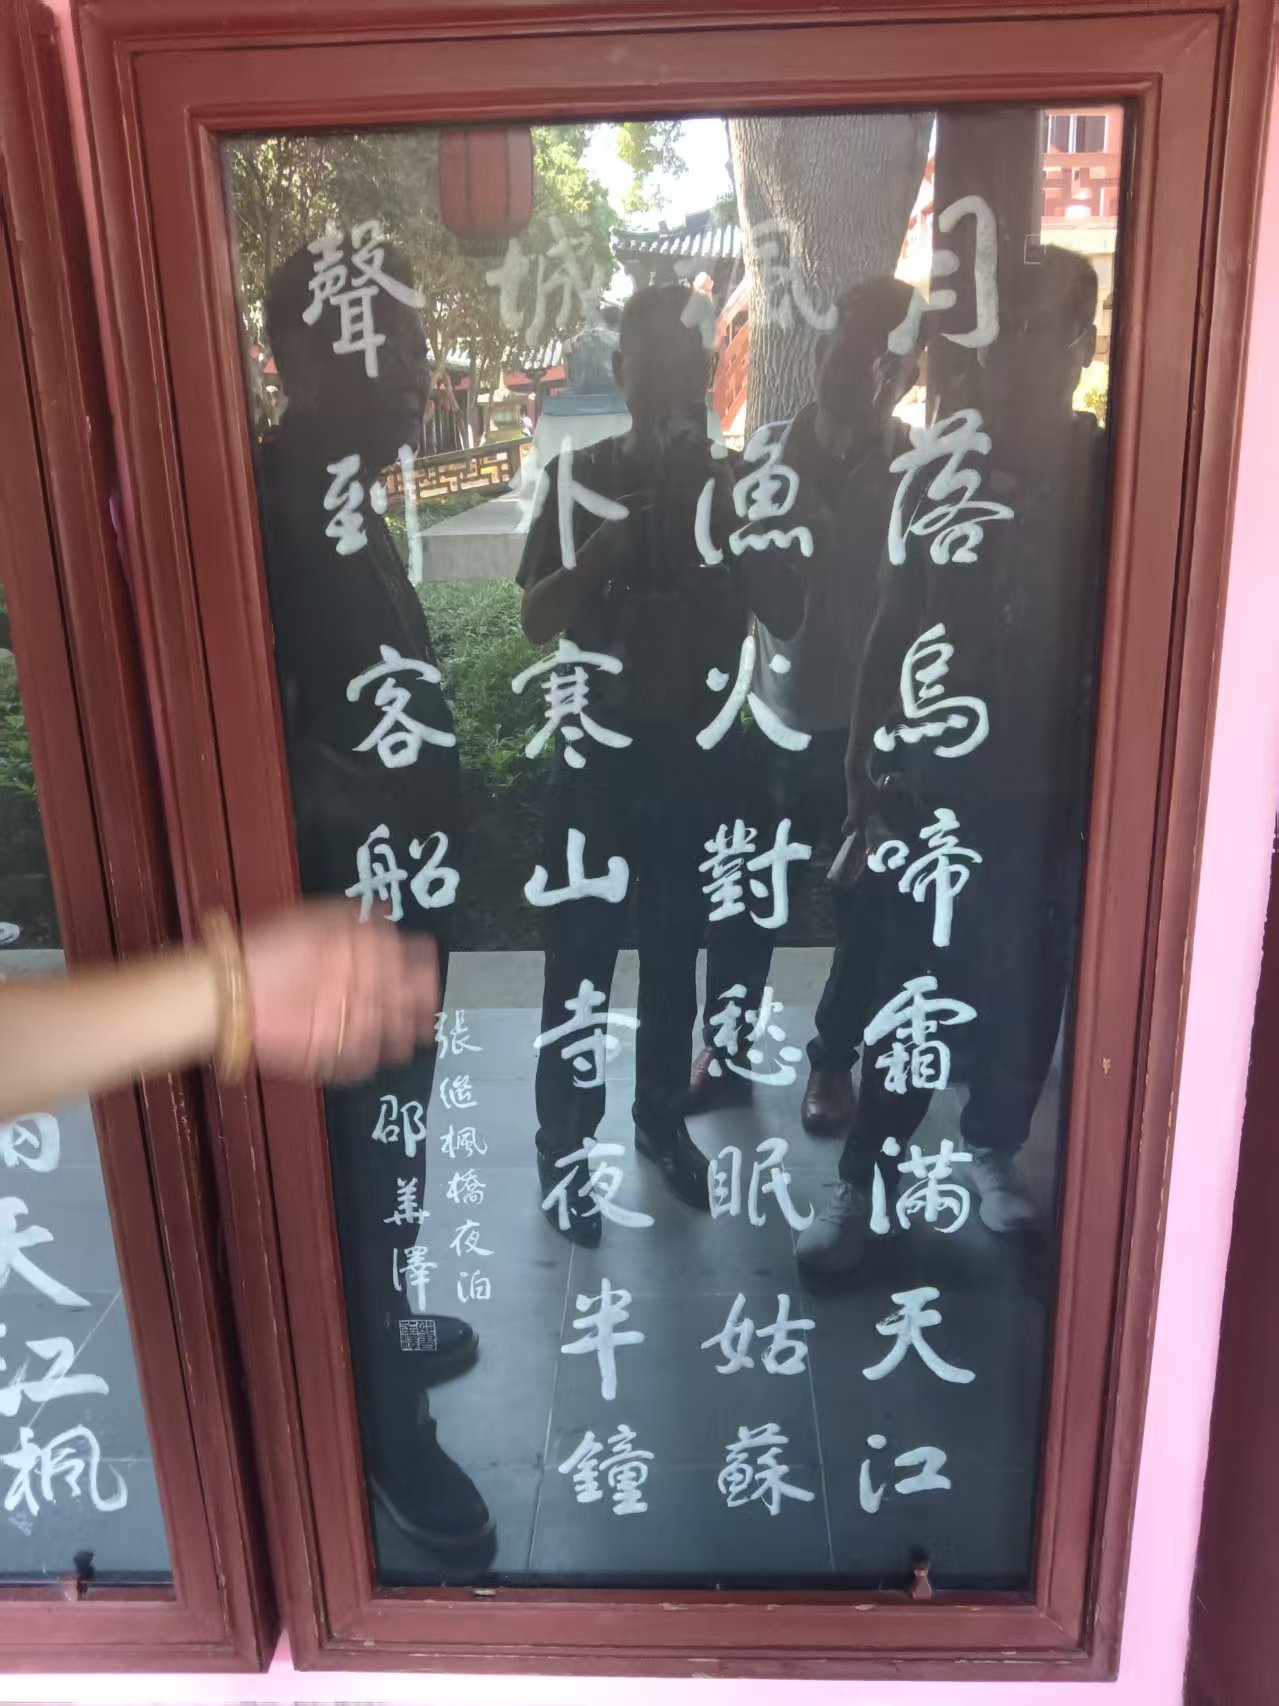 月落烏啼霜滿天江
楓漁火對愁眠姑蘇
城外寒山寺夜半鐘
聲到客船
張繼楓橋夜泊
邵華澤
天江楓